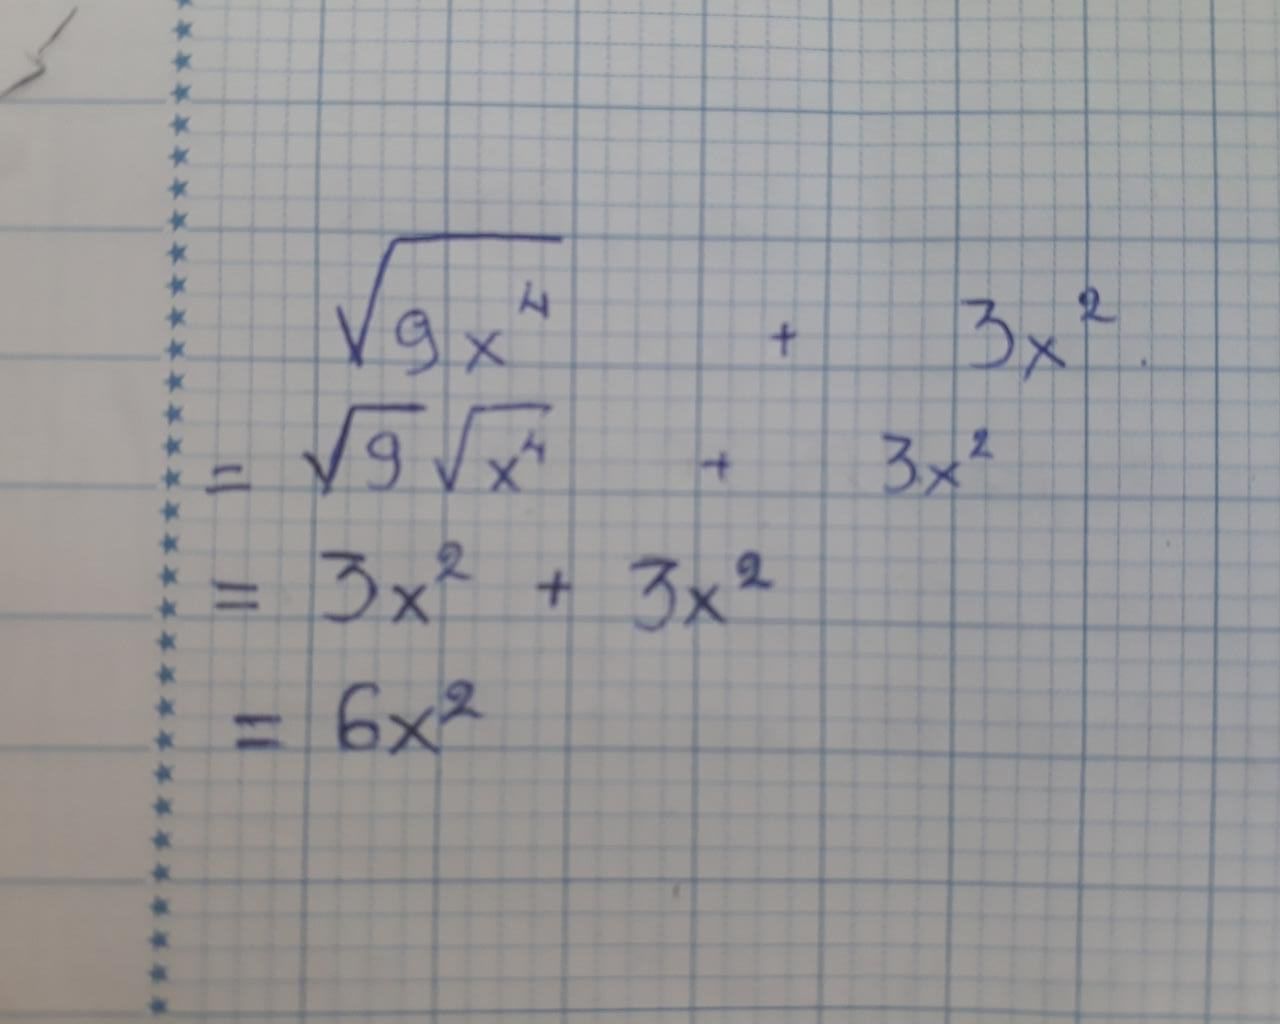 √9x⁴ + 3x².
= √9 √x⁴ + 3x²
= 3x² + 3x²
= 6x²